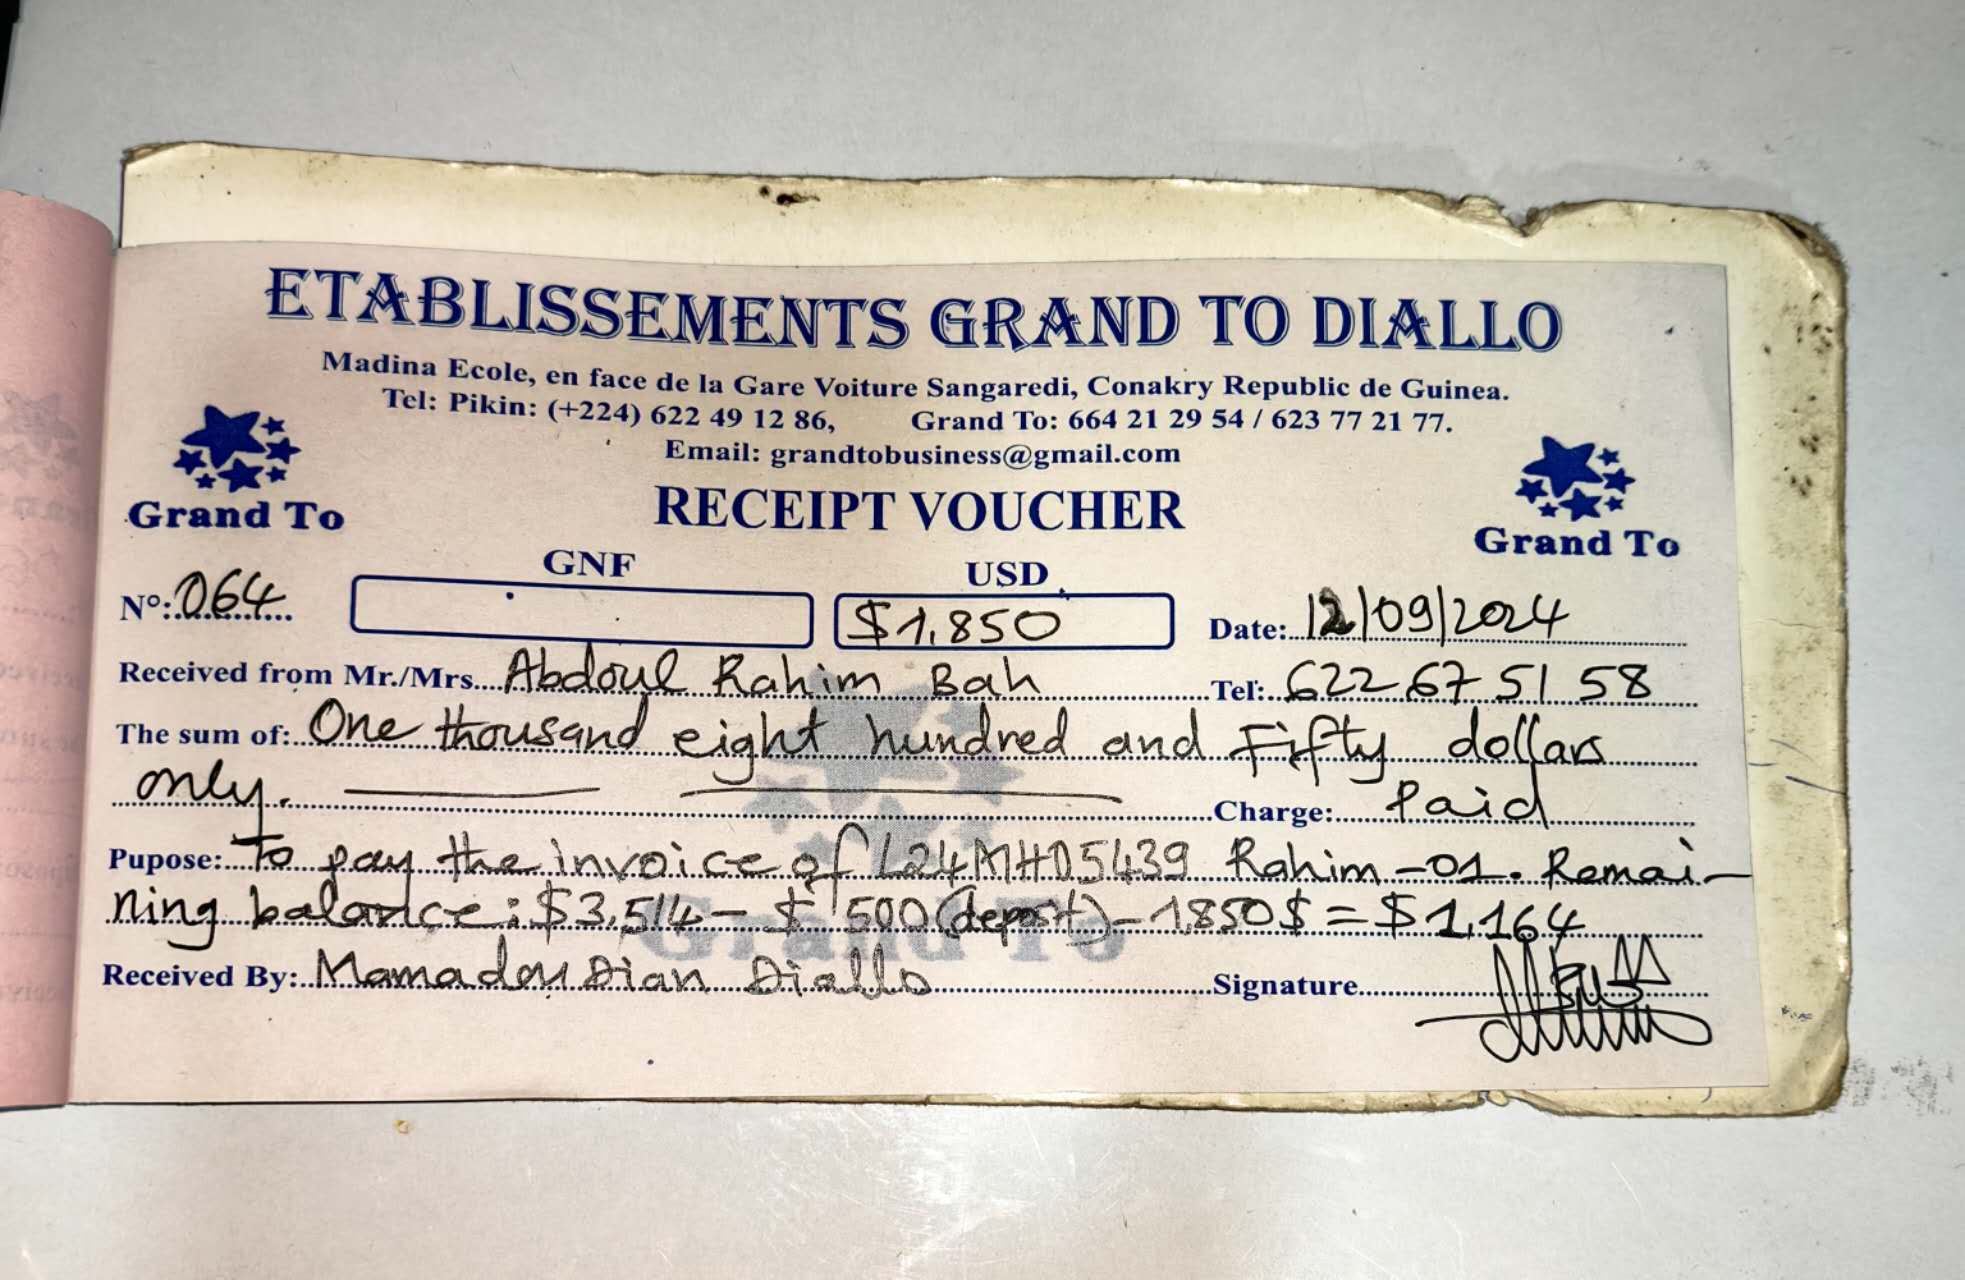 ETABLISSEMENTS GRAND TO DIALLO
Madina Ecole, en face de la Gare Voiture Sangaredi, Conakry Republic de Guinea.
Tel: Pikin: (+224) 622 49 12 86, Grand To: 664 21 29 54 / 623 77 21 77.
Email: grandtobusiness@gmail.com
Grand To
RECEIPT VOUCHER
Grand To
GNF USD
N°: 064 $1,850 Date: 12/09/2024
Received from Mr./Mrs Abdoul Rahim Bah Tel: 622 67 51 58
The sum of: One thousand eight hundred and Fifty dollars
only. Charge: Paid
Pupose: To pay the invoice of L24MH05439 Rahim-01. Remai-
ning balance: $3,514 - $ 500 (deposit) - 1,850$ = $1,164
Grand To
Received By: Mamadou Dian Diallo Signature